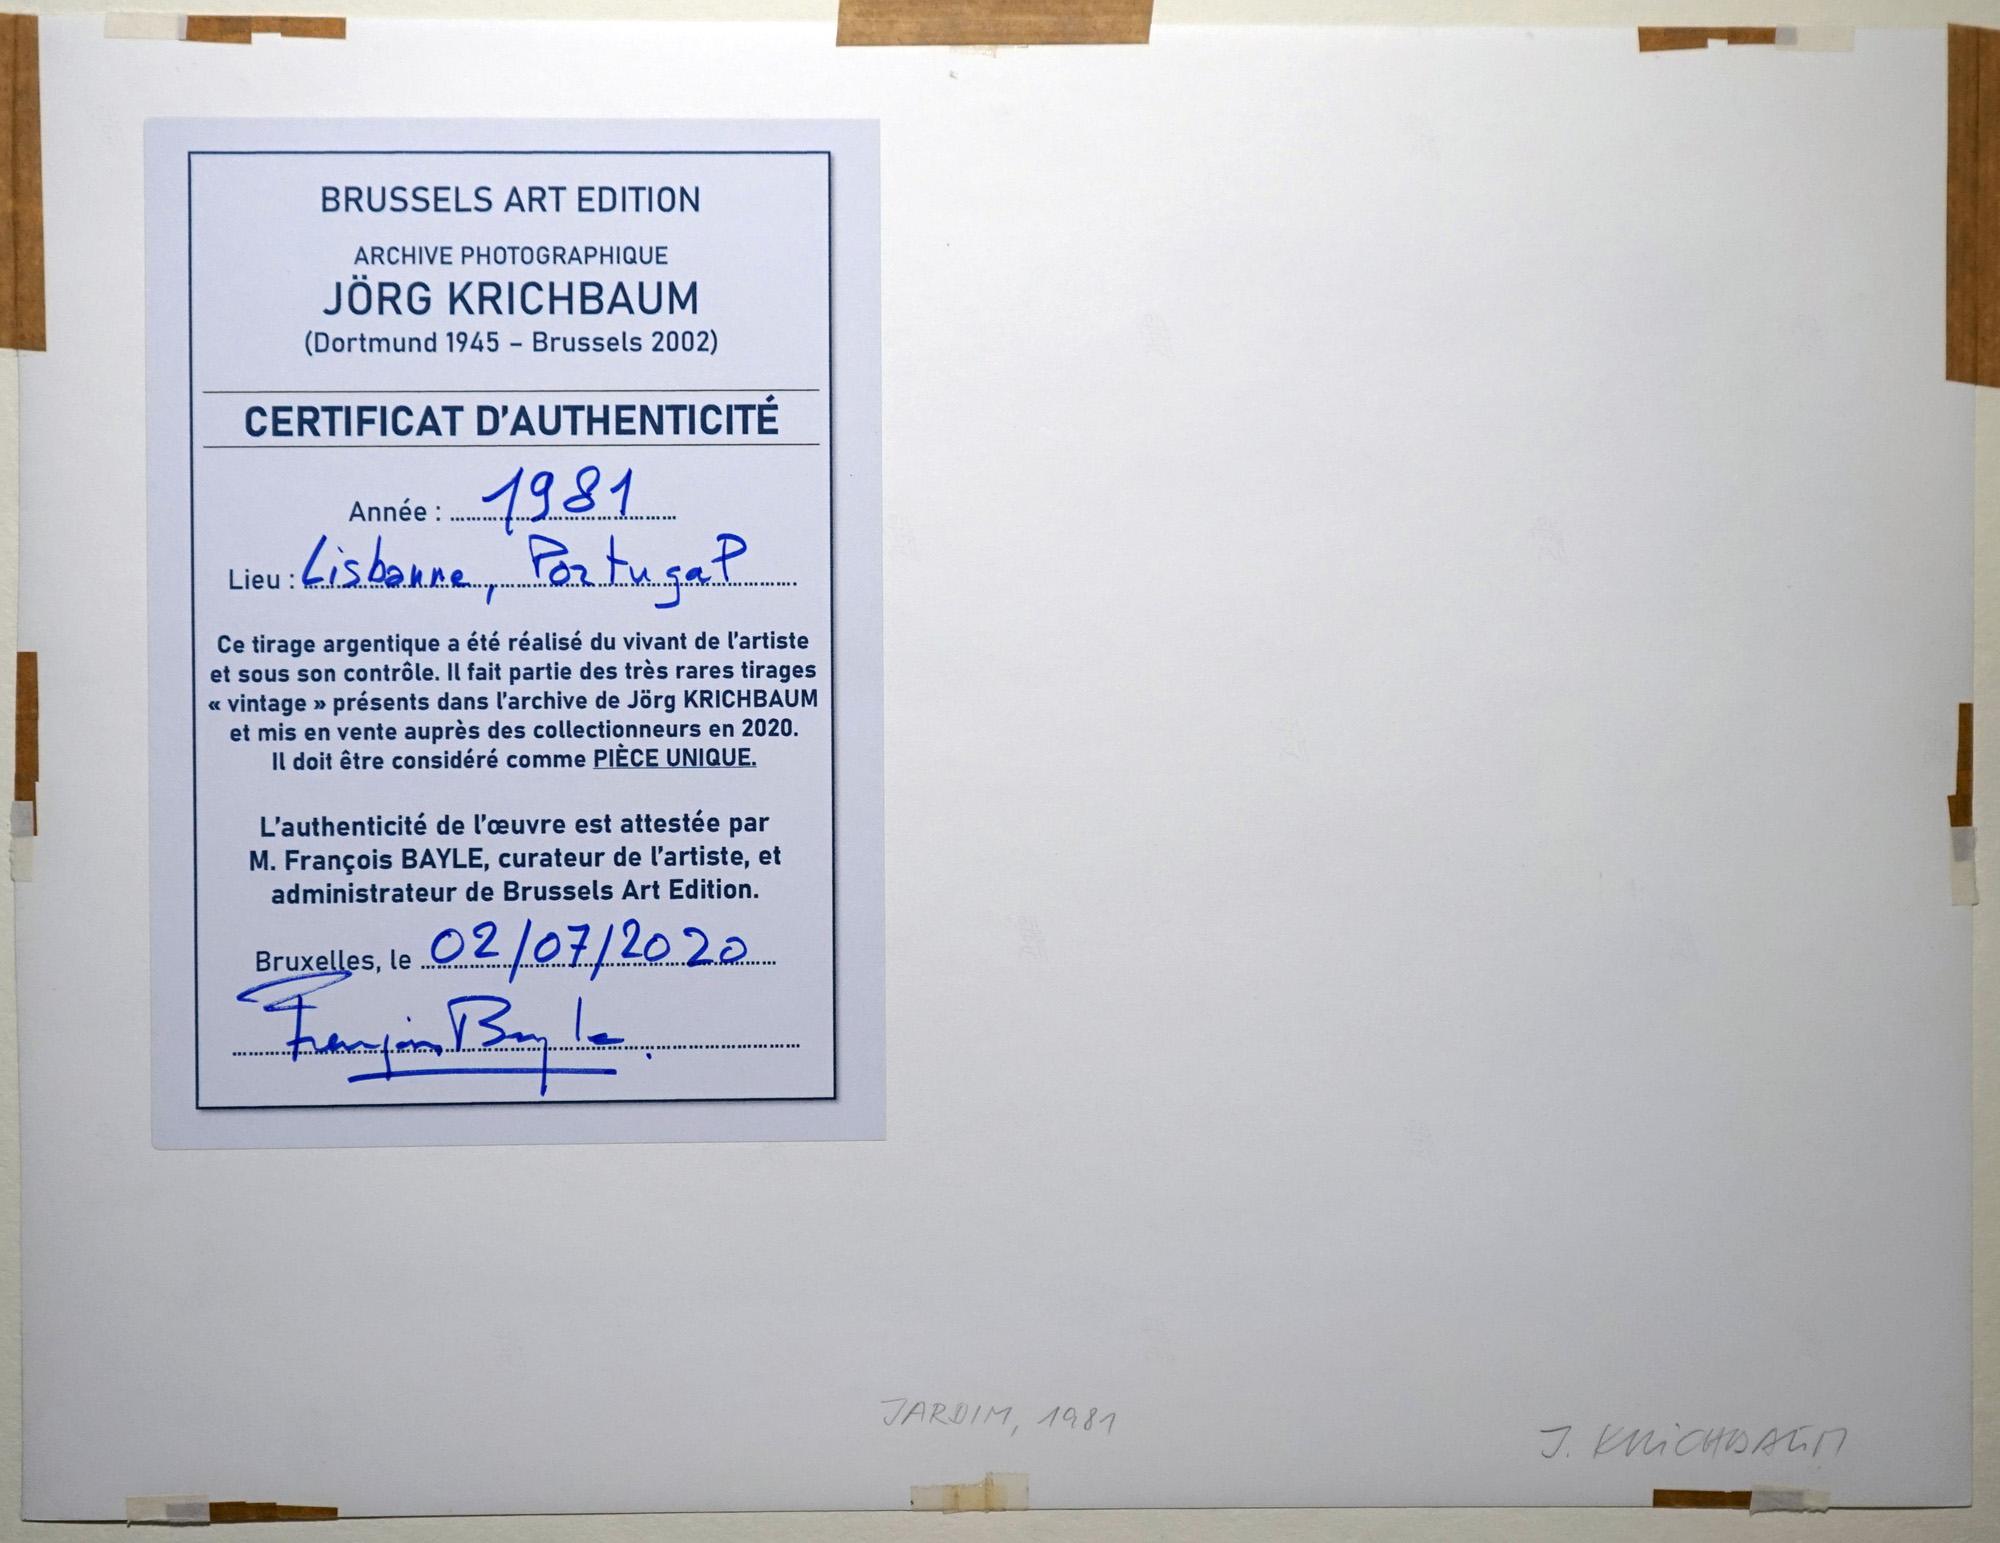 BRUSSELS ART EDITION
ARCHIVE PHOTOGRAPHIQUE
JÖRG KRICHBAUM
(Dortmund 1945 – Brussels 2002)
CERTIFICAT D'AUTHENTICITÉ
Année : 1981
Lieu : Lisbonne, Portugal
Ce tirage argentique a été réalisé du vivant de l'artiste
et sous son contrôle. Il fait partie des très rares tirages
« vintage » présents dans l'archive de Jörg KRICHBAUM
et mis en vente auprès des collectionneurs en 2020.
Il doit être considéré comme PIÈCE UNIQUE.
L'authenticité de l'œuvre est attestée par
M. François BAYLE, curateur de l'artiste, et
administrateur de Brussels Art Edition.
Bruxelles, le 02/07/2020
François Bayle
JARDIM, 1981
J. KRICHBAUM